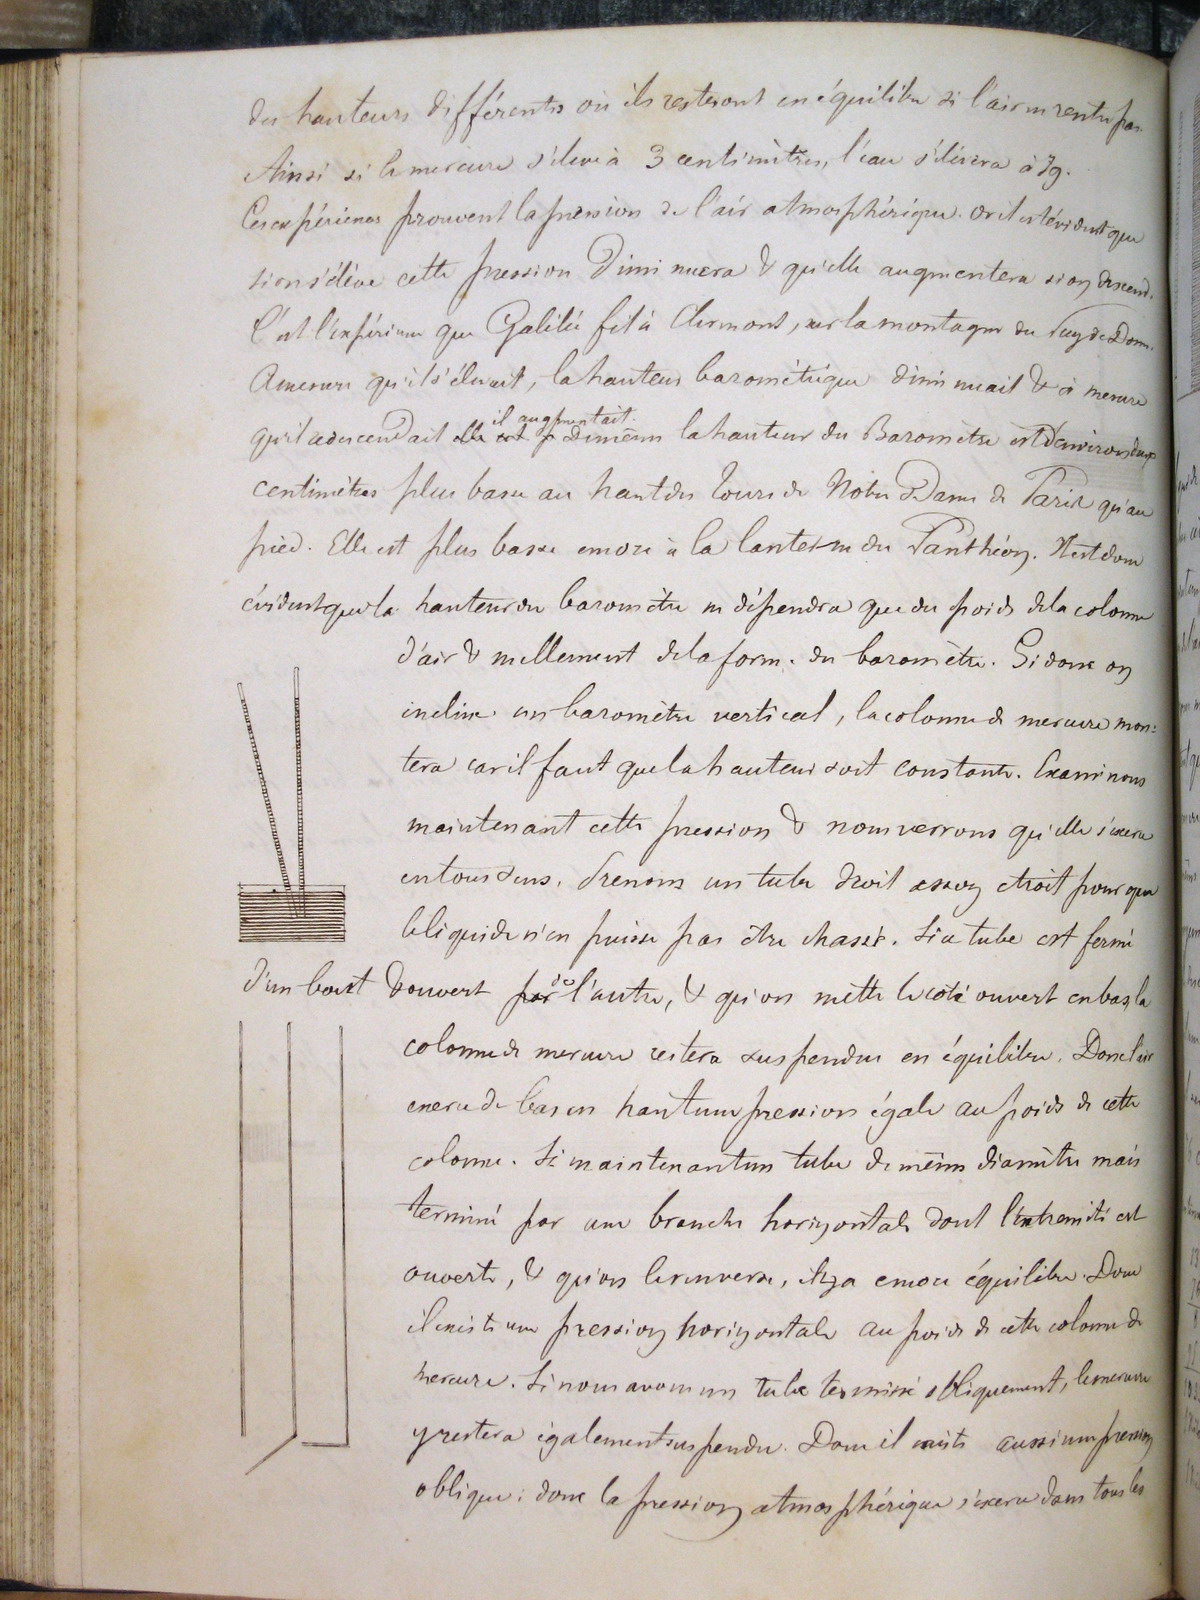 des hauteurs différentes où ils resteront en équilibre si l'air n'y rentre pas.
Ainsi si le mercure s'élève à 3 centimètres, l'eau s'élèvera à 39.
Ces expériences prouvent la pression de l'air atmosphérique. Or il est évident que
si on s'élève cette pression diminuera & qu'elle augmentera si on descend.
C'est l'expérience que Galilée fit à Clermont, sur la montagne du Puy de Dôme.
A mesure qu'il s'élevait, la hauteur barométrique diminuait & à mesure
qu'il redescendait il augmentait. de même la hauteur du Baromètre est d'environ deux
centimètres plus basse au haut des tours de Notre Dame de Paris qu'au
pied. Elle est plus basse encore à la lanterne du Panthéon. Il est donc
évident que la hauteur du baromètre ne dépendra que du poids de la colonne
d'air & nullement de la forme du baromètre. Si donc on
incline un baromètre vertical, la colonne de mercure mon=
tera car il faut que la hauteur soit constante. Examinons
maintenant cette pression & nous verrons qu'elle s'exerce
en tous sens. Prenons un tube droit assez étroit pour que
le liquide n'en puisse pas être chassé. Si ce tube est fermé
d'un bout & ouvert de l'autre, & qu'on mette le côté ouvert en bas, la
colonne de mercure restera suspendue en équilibre. Donc l'air
exerce de bas en haut une pression égale au poids de cette
colonne. Si maintenant un tube de même diamètre mais
terminé par une branche horizontale dont l'extrémité est
ouverte, & qu'on le renverse, il y a encore équilibre. Donc
il existe une pression horizontale au poids de cette colonne de
mercure. Si nous avons un tube terminé obliquement, le mercure
y restera également suspendu. Donc il existe aussi une pression
oblique : donc la pression atmosphérique s'exerce dans tous les